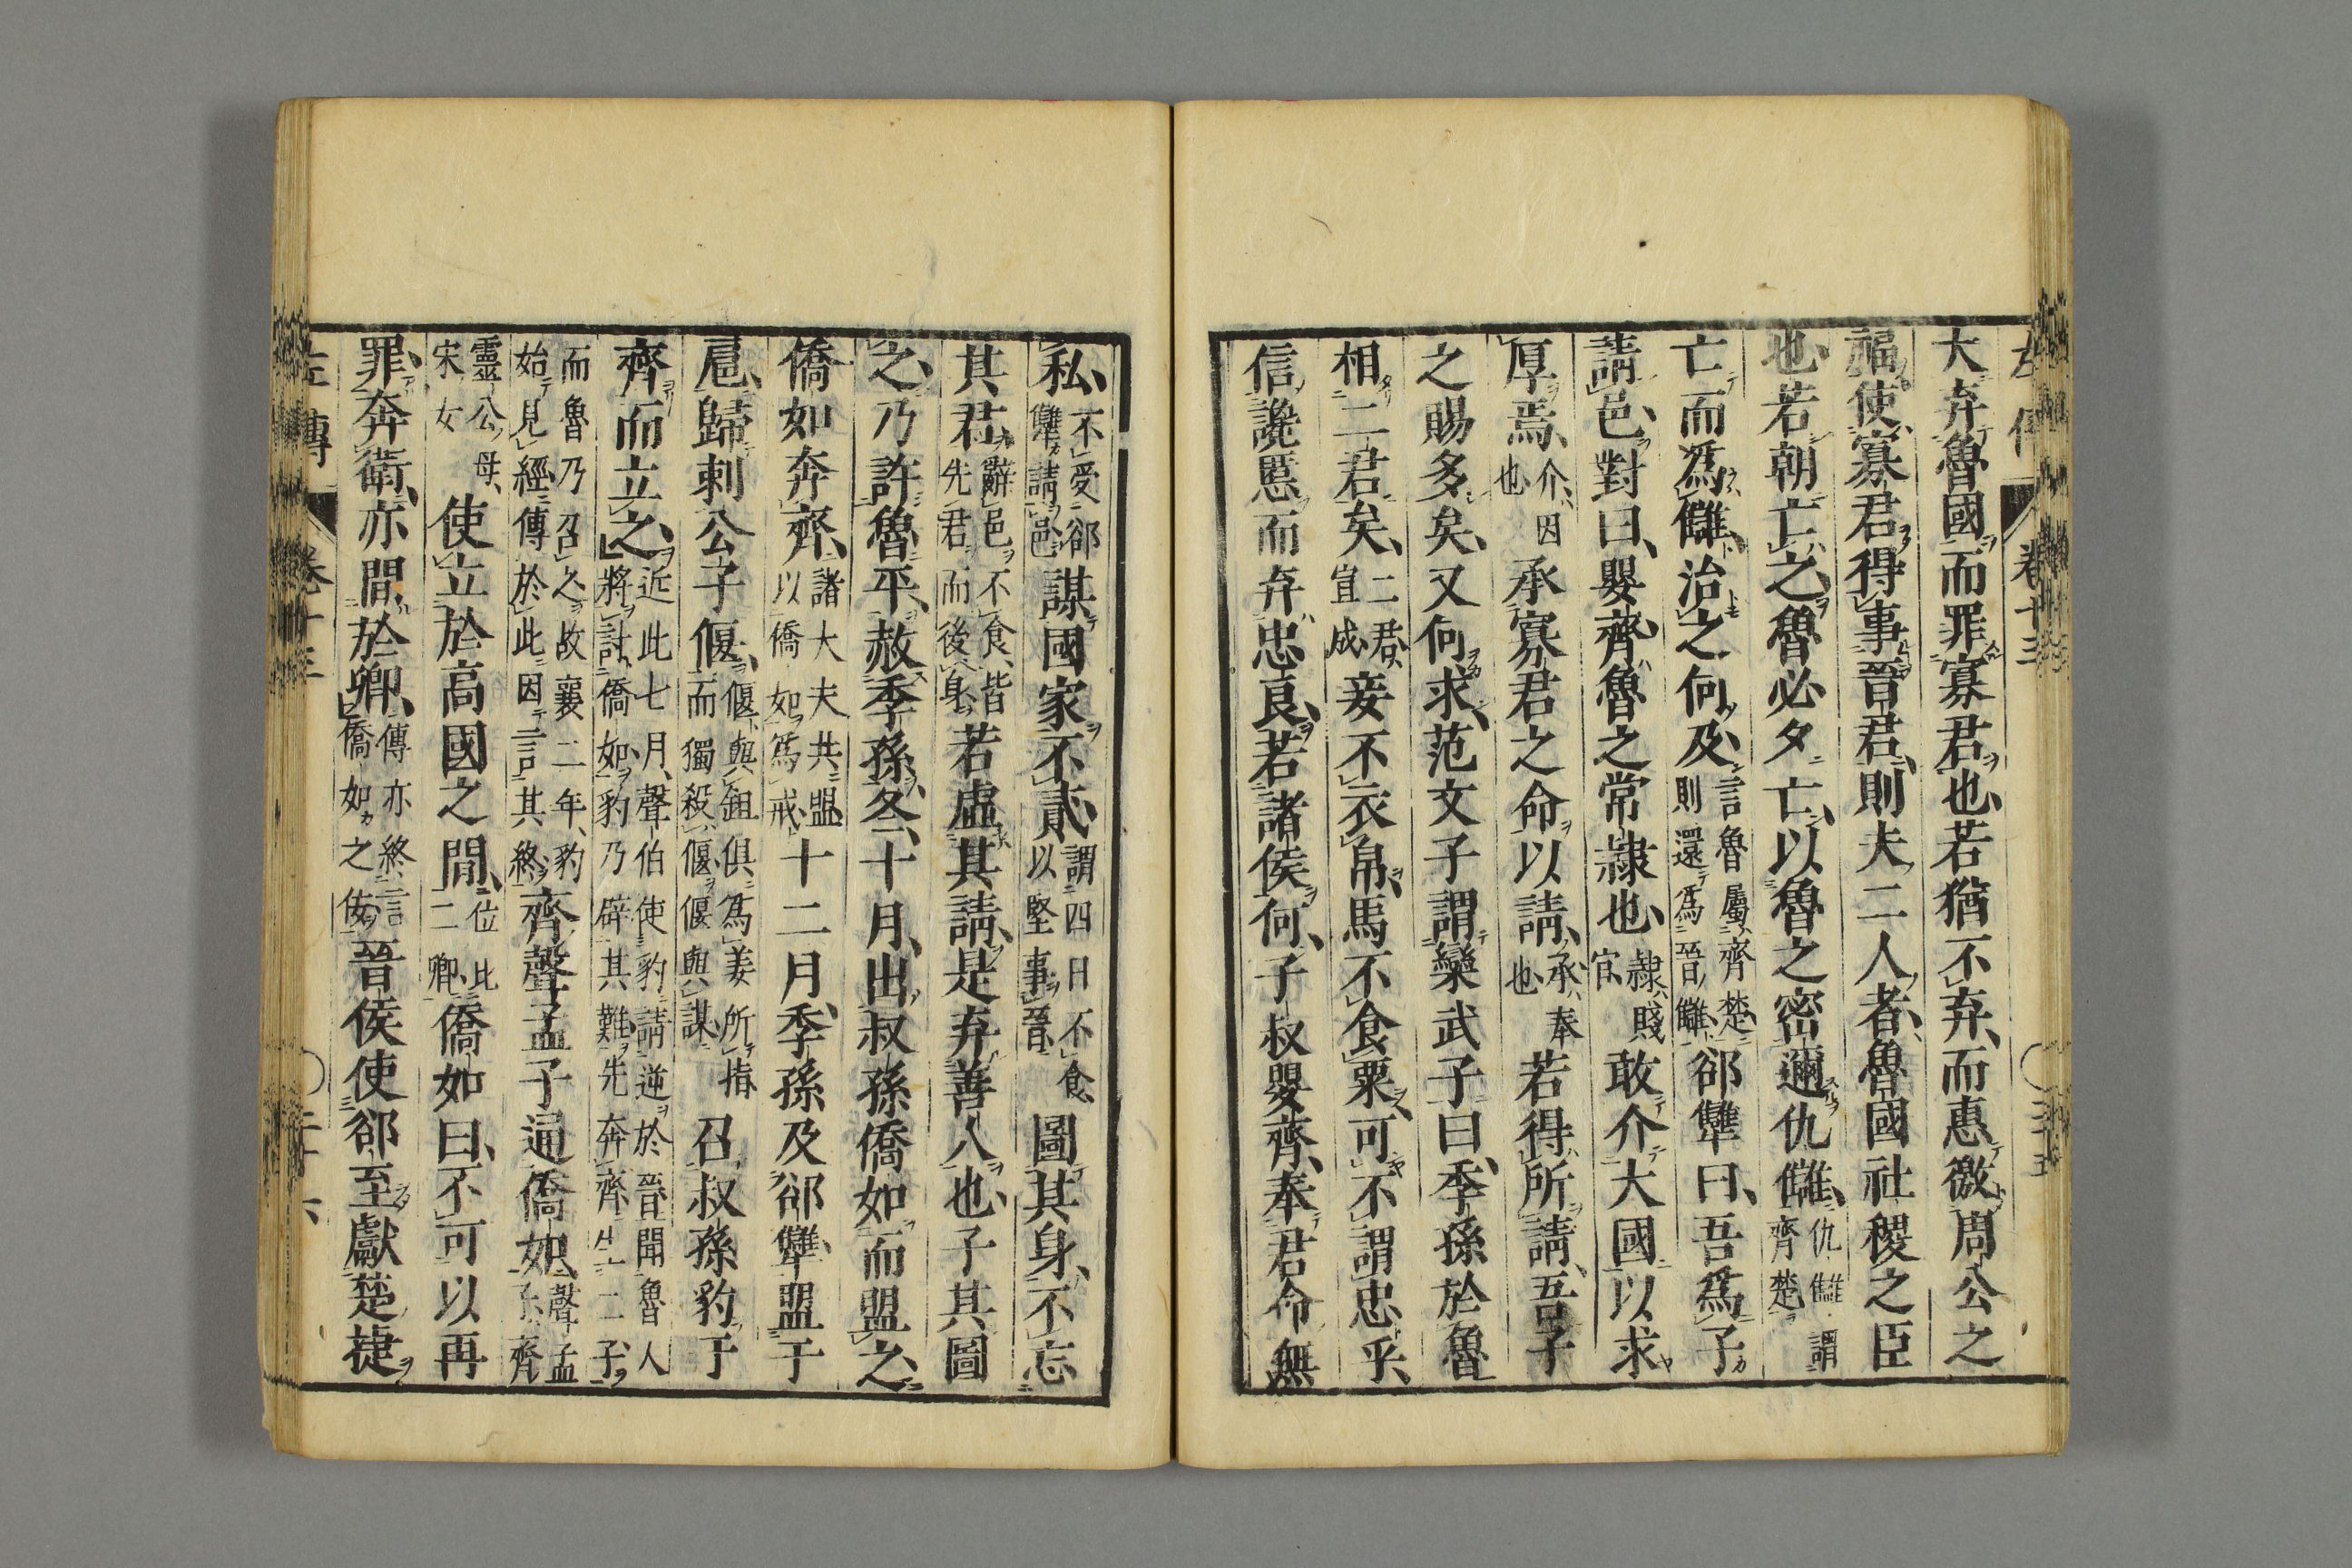 卷十三
大弃魯國而罪寡君也若猶不弃而惠徼周公之
福使寡君得事晉君則夫二人者魯國社稷之臣
也若朝亡之魯必夕亡以魯之密邇仇讎仇讎謂齊楚
亡而爲讎治之何及言魯屬齊楚則還爲晉讎郤犫曰吾爲子
請邑對曰嬰齊魯之常隷也隷賤官敢介大國以求
厚焉介因也承寡君之命以請承奉也若得所請吾子
之賜多矣又何求范文子謂欒武子曰季孫於魯
相二君矣二君宣成妾不衣帛馬不食粟可不謂忠乎
信讒慝而弃忠良若諸侯何子叔嬰齊奉君命無
私不受郤犫請邑謀國家不貳謂四日不食以堅事晉圖其身不忘
其君辭邑不食皆先君而後身若虛其請是弃善人也子其圖
之乃許魯平赦季孫冬十月出叔孫僑如而盟之
僑如奔齊諸大夫共盟以僑如爲戒十二月季孫及郤犫盟于
扈歸刺公子偃偃與鉏俱爲姜所指而獨殺偃偃與謀召叔孫豹于
齊而立之近此七月聲伯使豹請逆於晉聞魯人將討僑如豹乃辟其難先奔齊生二子
而魯乃召之故襄二年豹始見經傳於此因言其終齊聲孟子通僑如聲孟子齊
靈公母宋女使立於高國之間位比二卿僑如曰不可以再
罪奔衛亦間於卿傳亦終言僑如之佞晉侯使郤至獻楚捷
左傳 卷十三